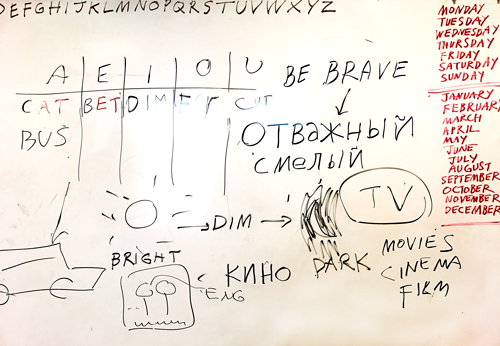 DEFGHIJKLMNOPQRSTUVWXYZ
A E I O U
CAT BET DIM CUT
BUS
BE BRAVE
ОТВАЖНЫЙ
СМЕЛЫЙ
BRIGHT
DIM
DARK
TV
КИНО
ENG
MOVIES
CINEMA
FILM
MONDAY
TUESDAY
WEDNESDAY
THURSDAY
FRIDAY
SATURDAY
SUNDAY
JANUARY
FEBRUARY
MARCH
APRIL
MAY
JUNE
JULY
AUGUST
SEPTEMBER
OCTOBER
NOVEMBER
DECEMBER